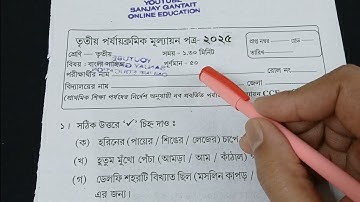 YOUTUBE
SANJAY GANTAIT
ONLINE EDUCATION
তৃতীয় পর্যায়ক্রমিক মূল্যায়ন পত্র- ২০২৫
শ্রেণি – তৃতীয়
সময় - ১.৩০ মিনিট
ক্রম
তারিখ
বিষয় : বাংলা
পূর্ণমান - ৫০
পরীক্ষার্থীর নাম
রোল নং
বিদ্যালয়ের নাম
জেলা
(প্রাথমিক শিক্ষা পর্ষদের নির্দেশ অনুযায়ী নব প্রবর্তিত
CCE
১। সঠিক উত্তরে '✓' চিহ্ন দাও।
(ক) হরিনের (পায়ের / শিঙের / লেজের) চাপে
(খ) হুতুম মুখো পেঁচা (আমড়া / আম / কাঁঠাল)
(গ) ডেলফি শহরটি বিখ্যাত ছিল (মসলিন কাপড়
এর জন্য।